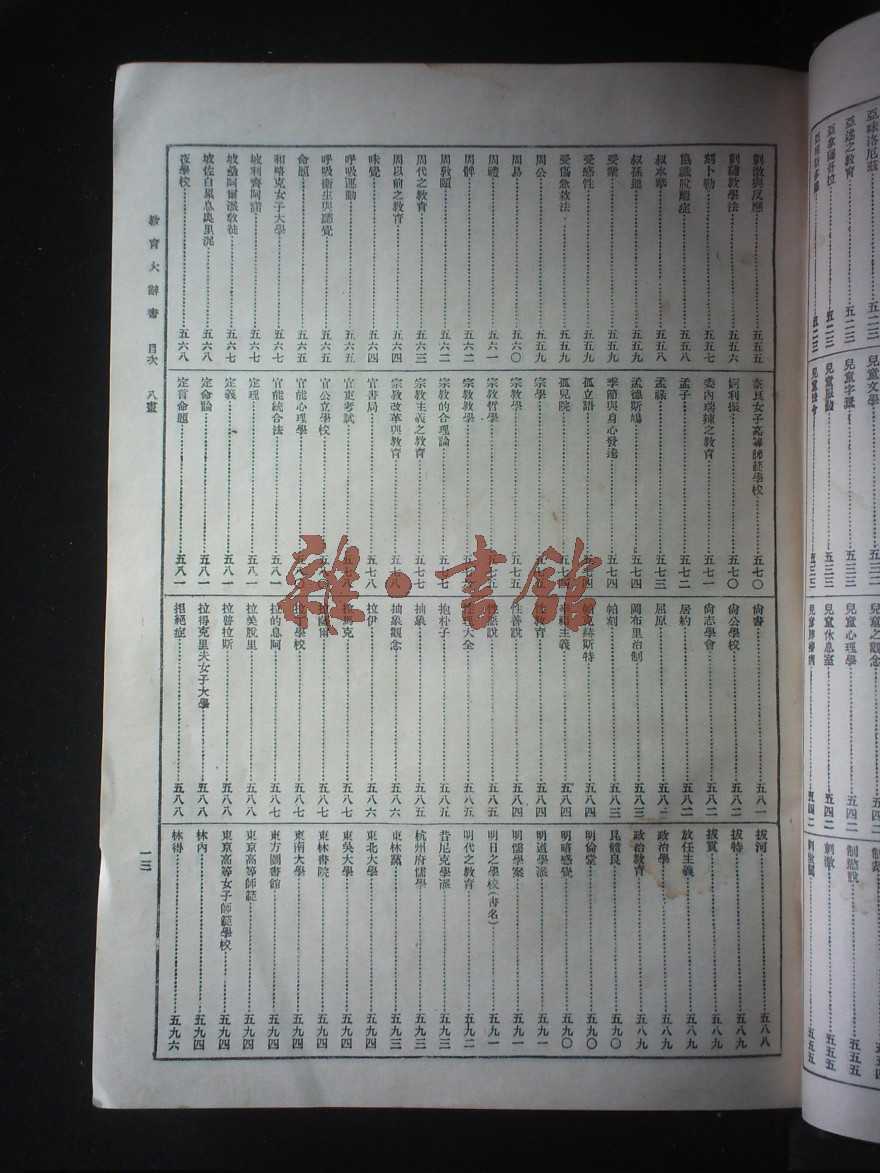 刺激與反應 五五五
刺繡教學法 五五六
刻卜勒 五五七
協識脫離症 五五八
叔本華 五五八
叔孫通 五五九
受業 五五九
受感性 五五九
受傷急救法 五五九
周公 五五九
周易 五六〇
周禮 五六一
周髀 五六二
周敦頤 五六二
周代之教育 五六三
周以前之教育 五六四
味覺 五六四
呼吸運動 五六五
呼吸衞生與聽覺 五六五
命題 五六五
和略克女子大學 五六七
坡利齊阿諾 五六七
坡壘阿爾派教徒 五六七
坡佐白羅息奧里泥 五六八
夜學校 五六八
奈良女子高等師範學校 五七〇
阿利振 五七〇
委內瑞辣之教育 五七一
孟子 五七二
孟祿 五七三
孟德斯鳩 五七四
季節與身心發達 五七四
孤立語 五七四
孤兒院
宗學
宗教學 五七五
宗教哲學
宗教教學
宗教的合理論 五七七
宗教主義之教育 五七七
宗教改革與教育 五七八
官書局 五七八
官吏考試 五七八
官公立學校
官能心理學
官能統合法 五八一
定理 五八一
定義 五八一
定命論 五八一
定言命題 五八一
尙書 五八一
尙公學校 五八二
尙志學會 五八二
居約 五八二
屈原 五八二
岡布里治制 五八三
帕刻 五八四
帕克赫斯特 五八四
幸福主義 五八四
性教育 五八四
性善說 五八四
性惡說 五八五
性理大全 五八五
抱朴子 五八五
抽象 五八五
抽象觀念 五八六
拉伊 五八六
拉馬克 五八七
拉薩爾 五八七
拉丁學校 五八七
拉的息阿 五八八
拉美脫里 五八八
拉普拉斯 五八八
拉得克里夫女子大學 五八八
拒絕症 五八八
拔河 五八八
拔特 五八九
拔貢 五八九
放任主義 五八九
政治學 五八九
政治教育 五八九
昆體良 五九〇
明倫堂 五九〇
明暗感覺 五九〇
明道學派 五九一
明儒學案 五九一
明日之學校(書名) 五九一
明代之教育 五九二
昔尼克學派 五九三
杭州府儒學 五九三
東林黨 五九三
東北大學 五九四
東吳大學 五九四
東林書院 五九四
東南大學 五九四
東方圖書館 五九四
東京高等師範 五九四
東京高等女子師範學校 五九四
林內 五九四
林得 五九六
教育大辭書 目次 八畫
一三
雜·書館
亞味洛厄茲
亞述之教育 五二三
亞拿薩哥拉 五二三
兒童文學
兒童字彙 五三三
兒童之觀念
兒童心理學 五四二
兒童休息室 五四二
制裁
制慾說 五五五
刺激 五五五